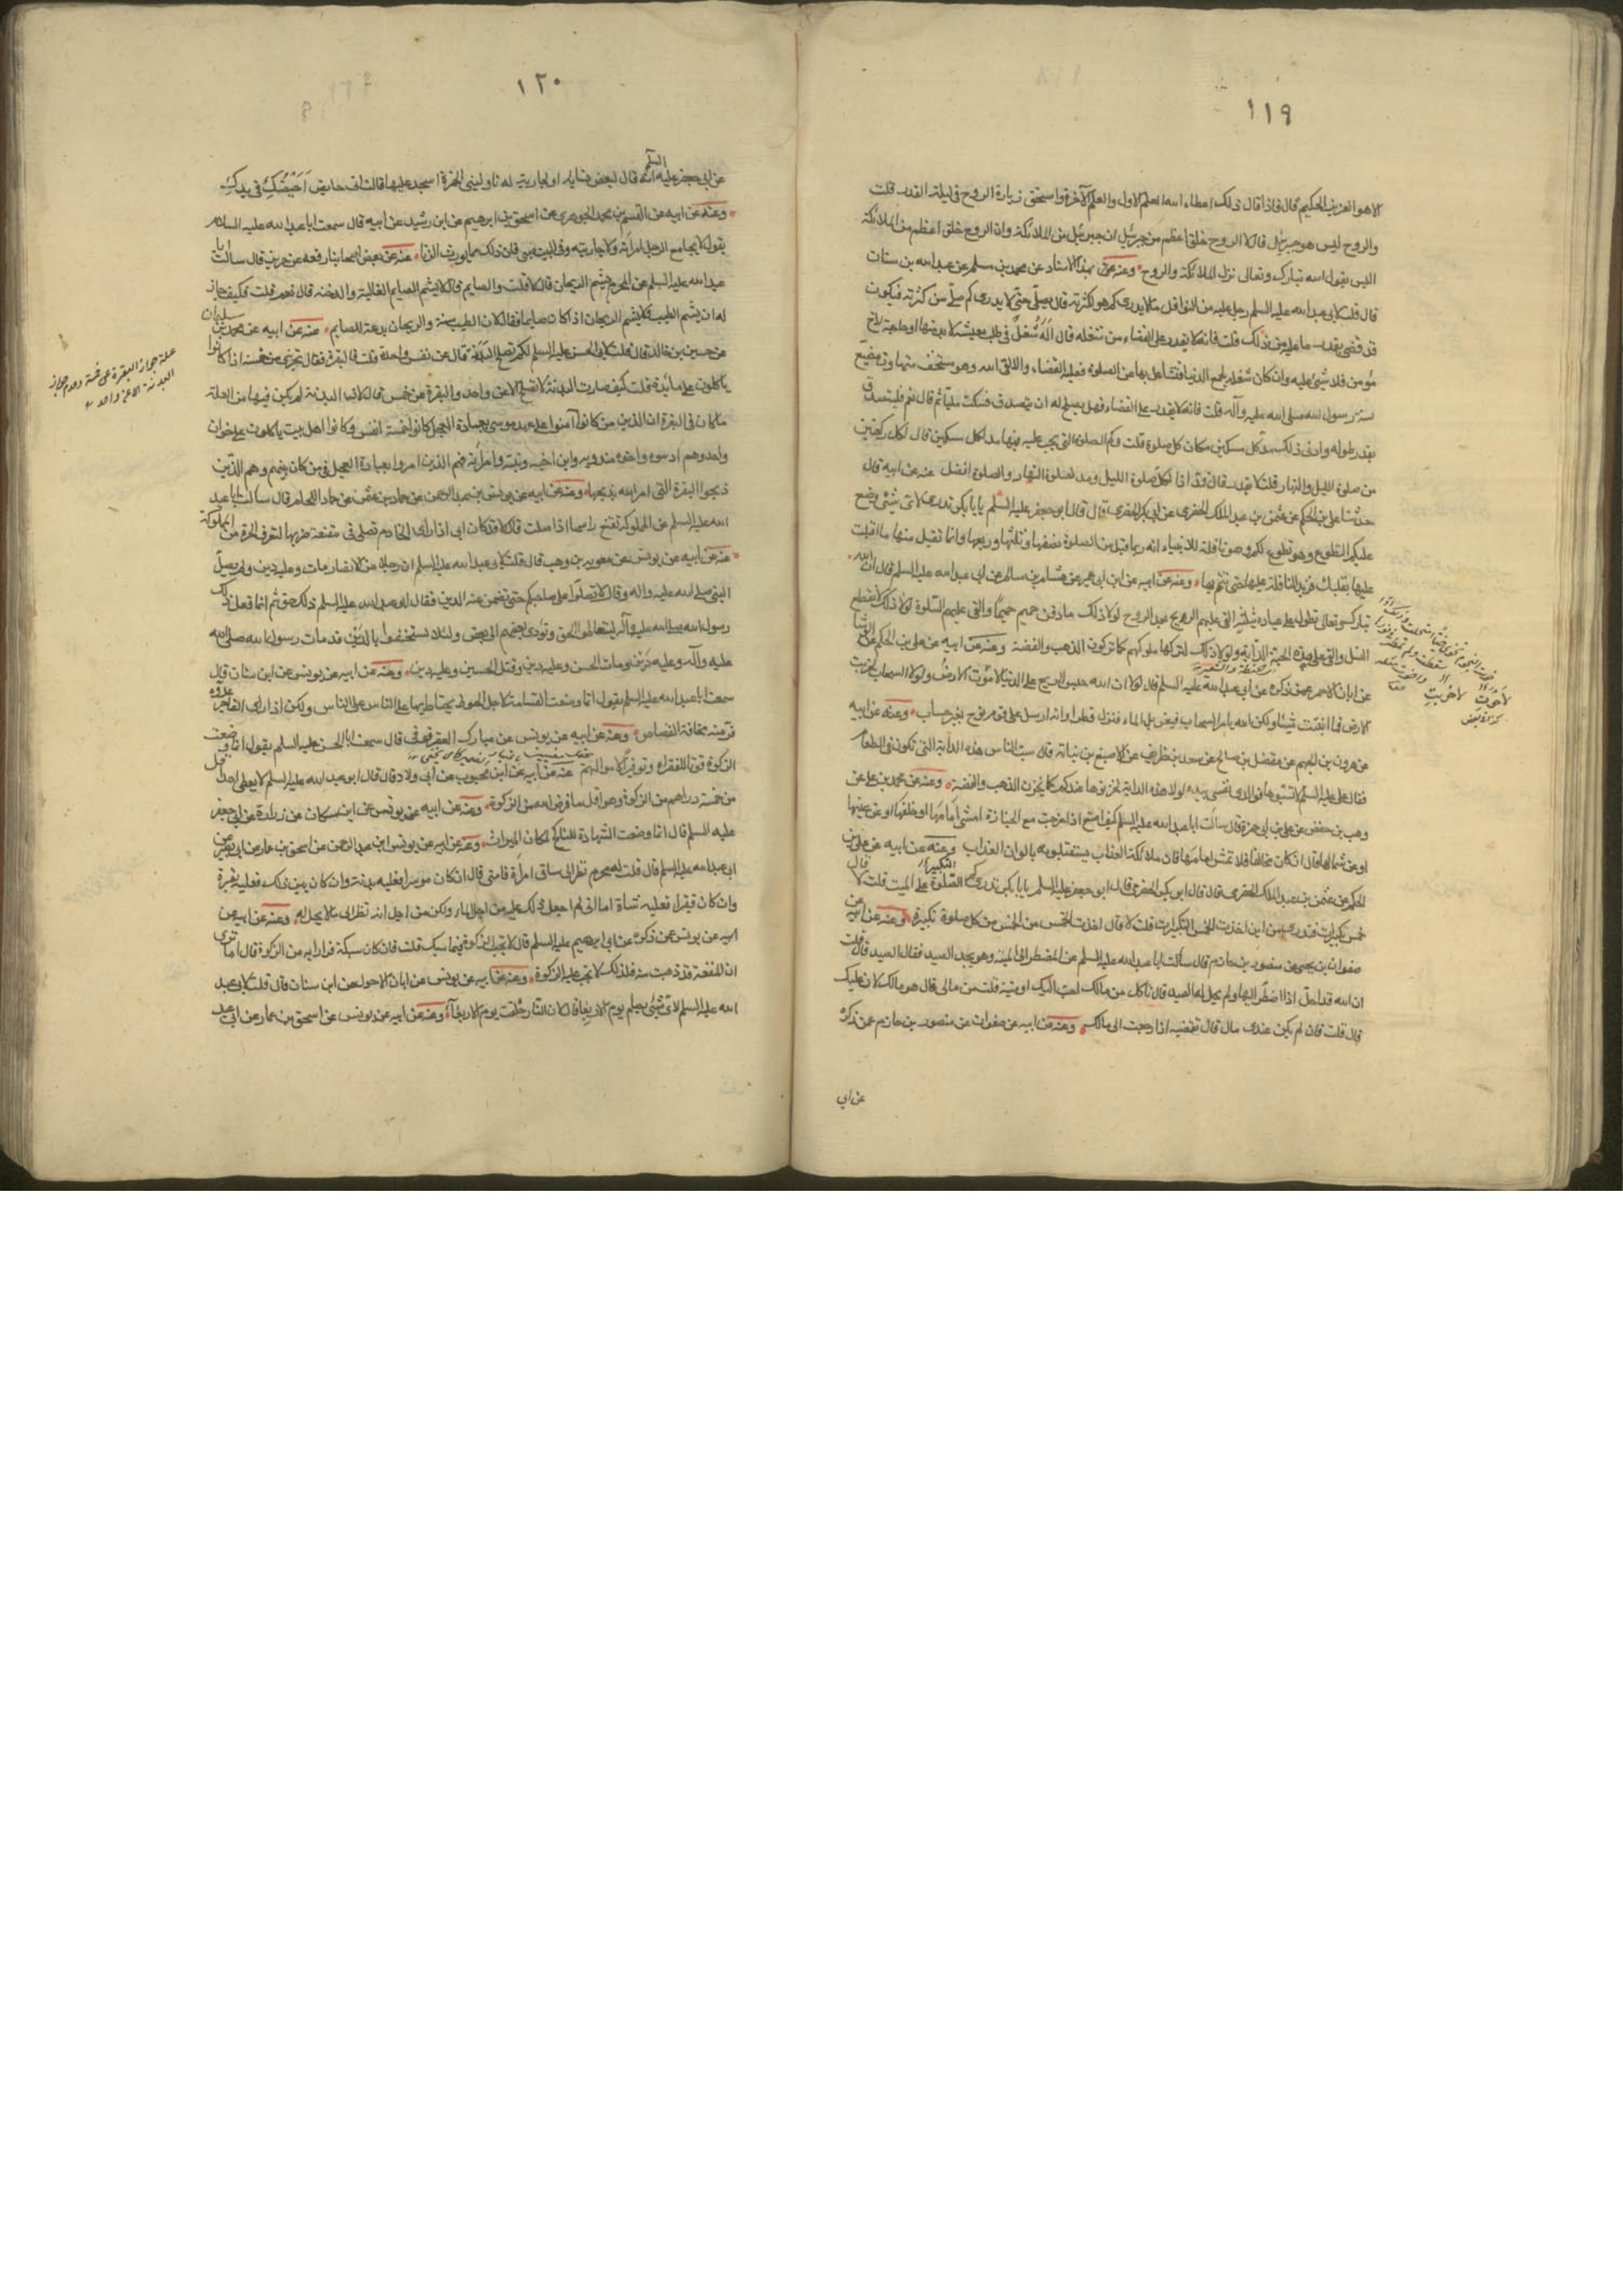 ١١٩
الا هو العزيز الحكيم قال فاذا قال ذلك اعطاه الله العلم الاول والعلم الآخر واستحق زيارة الروح في ليلة القدر قلت
والروح ليس هو جبرئيل قال لا الروح خلق اعظم من جبرئيل ان جبرئيل من الملائكة وان الروح خلق اعظم من الملائكة
اليس يقول الله تبارك وتعالى نزل الملائكة والروح وعنه عن بهذا الاسناد عن محمد بن مسلم عن عبد الله بن سنان
قال قلت لابي عبد الله عليه السلم رجل عليه من النوافل ما لا يدري كم هو لكثرته قال يصلي حتى لا يدري كم صلى من كثرته فيكون
قد قضى بقدر ما عليه من ذلك قلت فانه لا يقدر على القضاء من شغله قال ان شغل في طلب معيشة لا بد منها او حاجة لاخ
مؤمن فلا شئ عليه وان كان شغله لجمع الدنيا فتشاغل بها عن الصلوة فعليه القضاء والا لقي الله وهو مستخف متهاون مضيع
سنة رسول الله صلى الله عليه وآله قلت فانه لا يقدر على القضاء فهل يصلح له ان يتصدق فسكت مليا ثم قال نعم فليتصدق
بقدر طوله وادنى ذلك مد لكل مسكين مكان كل صلوة قلت وكم الصلوة التي يجب عليه فيها مد لكل مسكين قال لكل ركعتين
من صلوة الليل والنهار قلت لا يقدر قال فمد اذا لكل صلوة الليل ومد لصلوة النهار والصلوة افضل عنه عن ابيه قال
حدثنا علي بن الحكم عن عثمن بن عبد الملك الحضرمي عن ابي بكر الحضرمي قال قال ابو جعفر عليه السلم يا با بكر تدري لاي شئ وضع
عليكم التطوع وهو تطوع لكم وهو نافلة للانبياء انه ربما قبل من الصلوة نصفها وثلثها وربعها وانما تقبل منها ما اقبلت
عليها بقلبك فزيدت النافلة عليها حتى تتم بها وعنه عن ابيه عن ابن ابي عمير عن هشام بن سالم عن ابي عبد الله عليه السلم قال ان الله
تبارك وتعالى تطول على عباده بثلث القى عليهم الريح بعد الروح لولا ذلك ما دفن حميم حميما والقى عليهم السلوة لولا ذلك لانقطع
النسل والقى على هذه الحبة الدابة ولولا ذلك لكنزها ملوكهم كما تكنزون الذهب والفضة وعنه عن ابيه عن علي بن الحكم
عن ابان الاحمر عمن ذكره عن ابي عبد الله عليه السلم قال لولا ان الله حبس الريح على الدنيا لاخوت الارض ولولا السحاب لخربت
الارض فما انبتت شيئا ولكن الله يامر السحاب فيغربل الماء فينزل قطرا وانه ارسل على قوم نوح بغير حساب وعنه عن ابيه
عن هرون بن الجهم عن مفضل بن صالح عن سعد بن طريف عن الاصبغ بن نباتة قال سبت الناس هذه الدابة التي تكون في الطعام
فقال علي عليه السلم لا تسبوها فوالذي نفسي بيده لولا هذه الدابة لخزنوها عندكم كما يخزن الذهب والفضة وعنه عن محمد بن علي عن
وهب بن حفص عن علي بن ابي حمزة قال سألت ابا عبد الله عليه السلم كيف اصنع اذا خرجت مع الجنازة امشي امامها او خلفها او عن يمينها
او عن شمالها قال ان كان مخالفا فلا تمش امامها فان ملائكة العذاب يستقبلونه بالوان العذاب وعنه عن ابيه عن علي بن
الحكم عن عثمن بن عبد الملك الحضرمي قال قال ابو بكر الحضرمي قال ابو جعفر عليه السلم يا با بكر تدري كم الصلوة على الميت قلت لا
خمس تكبيرات فتدري من اين اخذت الخمس التكبيرات قلت لا قال اخذت الخمس من الخمس من كل صلوة تكبيرة وعنه عن ابيه
صفوان بن يحيى عن منصور بن حازم قال سألت ابا عبد الله عليه السلم عن المضطر الى الميتة وهو يجد الصيد فقال الصيد قال قلت
ان الله قد احل اذا اضطر اليها ولم يحل له الصيد قال تاكل من مالك احب اليك او ميتة قلت من مالي قال هو مالك لان عليك
قال قلت فان لم يكن عندي مال قال تقضيه اذا رجعت الى مالك وعنه عن ابيه عن صفوان عن منصور بن حازم عمن ذكره
عن ابي
١٢٠
عن ابي جعفر عليه السلم انه قال لبعض نسايه او لجارية له ناوليني الخمرة اسجد عليها قالت اني حايض احيضك في يدك
وعنه عن ابيه عن القسم بن محمد الجوهري عن اسحق بن ابرهيم عن ابن رشيد عن ابيه قال سمعت ابا عبد الله عليه السلام
يقول لا يجامع الرجل امرأته ولا جاريته وفي البيت صبي فان ذلك مما يورث الزنا عنه عن بعض اصحابنا رفعه عن حريز قال سالت ابا
عبد الله عليه السلم عن المحرم يشم الريحان قال لا قلت والصايم قال لا يشم الصايم الغالية والدخنة قال نعم قلت فكيف حل
له ان يشم الطيب ولا يشم الريحان اذا كان صايما فقال لان الطيب سنة والريحان بدعة للصايم عنه عن ابيه عن محمد بن سليمان
عن حسين بن خالد قال قلت لابي الحسن عليه السلم لكم تصلح البدنة قال عن نفس واحدة قلت فالبقرة فقال تجزي عن خمسة اذا كانوا
ياكلون على مائدة قلت كيف صارت البدنة لا تصلح الا عن واحد والبقرة عن خمس قال لان البدنة لم يكن فيها من العلة
ما كان في البقرة ان الذين من كانوا آمنوا على عهد موسى بعبادة العجل كانوا خمسة انفس وكانوا اهل بيت ياكلون على خوان
واحد وهم اذنونه واخوه مندويه وابن اخيه وابنته وامرأته فهم الذين امروا بعبادة العجل في من كان منهم وهم الذين
ذبحوا البقرة التي امر الله بذبحها وعنه عن ابيه عن يونس بن عبد الرحمن عن حماد بن عثمن عن حماد اللحام قال سالت ابا عبد
الله عليه السلم عن المملوكة تقنع راسها اذا صلت قال لا قد كان ابي اذا رأى الخادم تصلي في مقنعة ضربها لتعرف الحرة من المملوكة
عنه عن ابيه عن يونس عن معوية بن وهب قال قلت لابي عبد الله عليه السلم ان رجلا من الانصار مات وعليه دين ولم يصل
النبي صلى الله عليه واله وقال لا تصلوا على صاحبكم حتى تضمن عنه الدين فقال ابو عبد الله عليه السلم ذلك حق ثم انما فعل ذلك
رسول الله صلى الله عليه وآله ليتعالموا الحق وتؤدي بعضهم الى بعض ولئلا يستخفوا بالدين قد مات رسول الله صلى الله
عليه وآله وعليه دين ومات الحسن وعليه دين وقتل الحسين وعليه دين وعنه عن ابيه عن يونس عن ابن سنان قال
سمعت ابا عبد الله عليه السلم يقول انما وضعت القسامة لاجل الحوط يحتاط بها على الناس ولكن اذا رأى الفاجر عدوه
فر منه مخافة القصاص وعنه عن ابيه عن يونس عن مبارك العقرقوفي قال سمعت ابا الحسن عليه السلم يقول انما وضعت
الزكوة قوتا للفقراء وتوفيرا لاموالهم عنه عن ابيه عن ابن محبوب عن ابي ولاد قال قال ابو عبد الله عليه السلم لا يعطى احد اقل
من خمسة دراهم من الزكوة وهو اقل ما فرض الله من الزكوة وعنه عن ابيه عن يونس عن ابن مسكان عن زرارة عن ابي جعفر
عليه السلم قال انما وضعت الشهادة للناكح لمكان الميراث وعنه عن ابيه عن يونس ابن عبد الرحمن عن اسحق بن عمار عن ابي بصير عن
ابي عبد الله عليه السلم قال قلت له محرم نظر الى ساق امرأة فامنى قال ان كان موسرا فعليه بدنة وان كان بين ذلك فعليه بقرة
وان كان فقيرا فعليه شاة اما اني لم اجعل ذلك عليه من اجل الماء ولكن من اجل انه نظر الى ما لا يحل له وعنه عن ابيه عن
ابيه عن يونس عمن ذكره عن ابي ابرهيم عليه السلم قال لا تجب الزكوة فيما سبك قلت فان كان سبكه فرارا به من الزكوة قال اما ترى
ان المنفعة قد ذهبت منه فلذلك لا تجب عليه الزكوة وعنه عن ابيه عن يونس عن ابان الاحول عن ابن سنان قال قلت لابي عبد
الله عليه السلم لاي شئ يصام يوم الاربعا قال لان النار خلقت يوم الاربعآء وعنه عن ابيه عن يونس عن اسحق بن عمار عن ابي عبد
علة جواز البقرة عن خمسة وعدم جواز
البدنة الا عن واحد